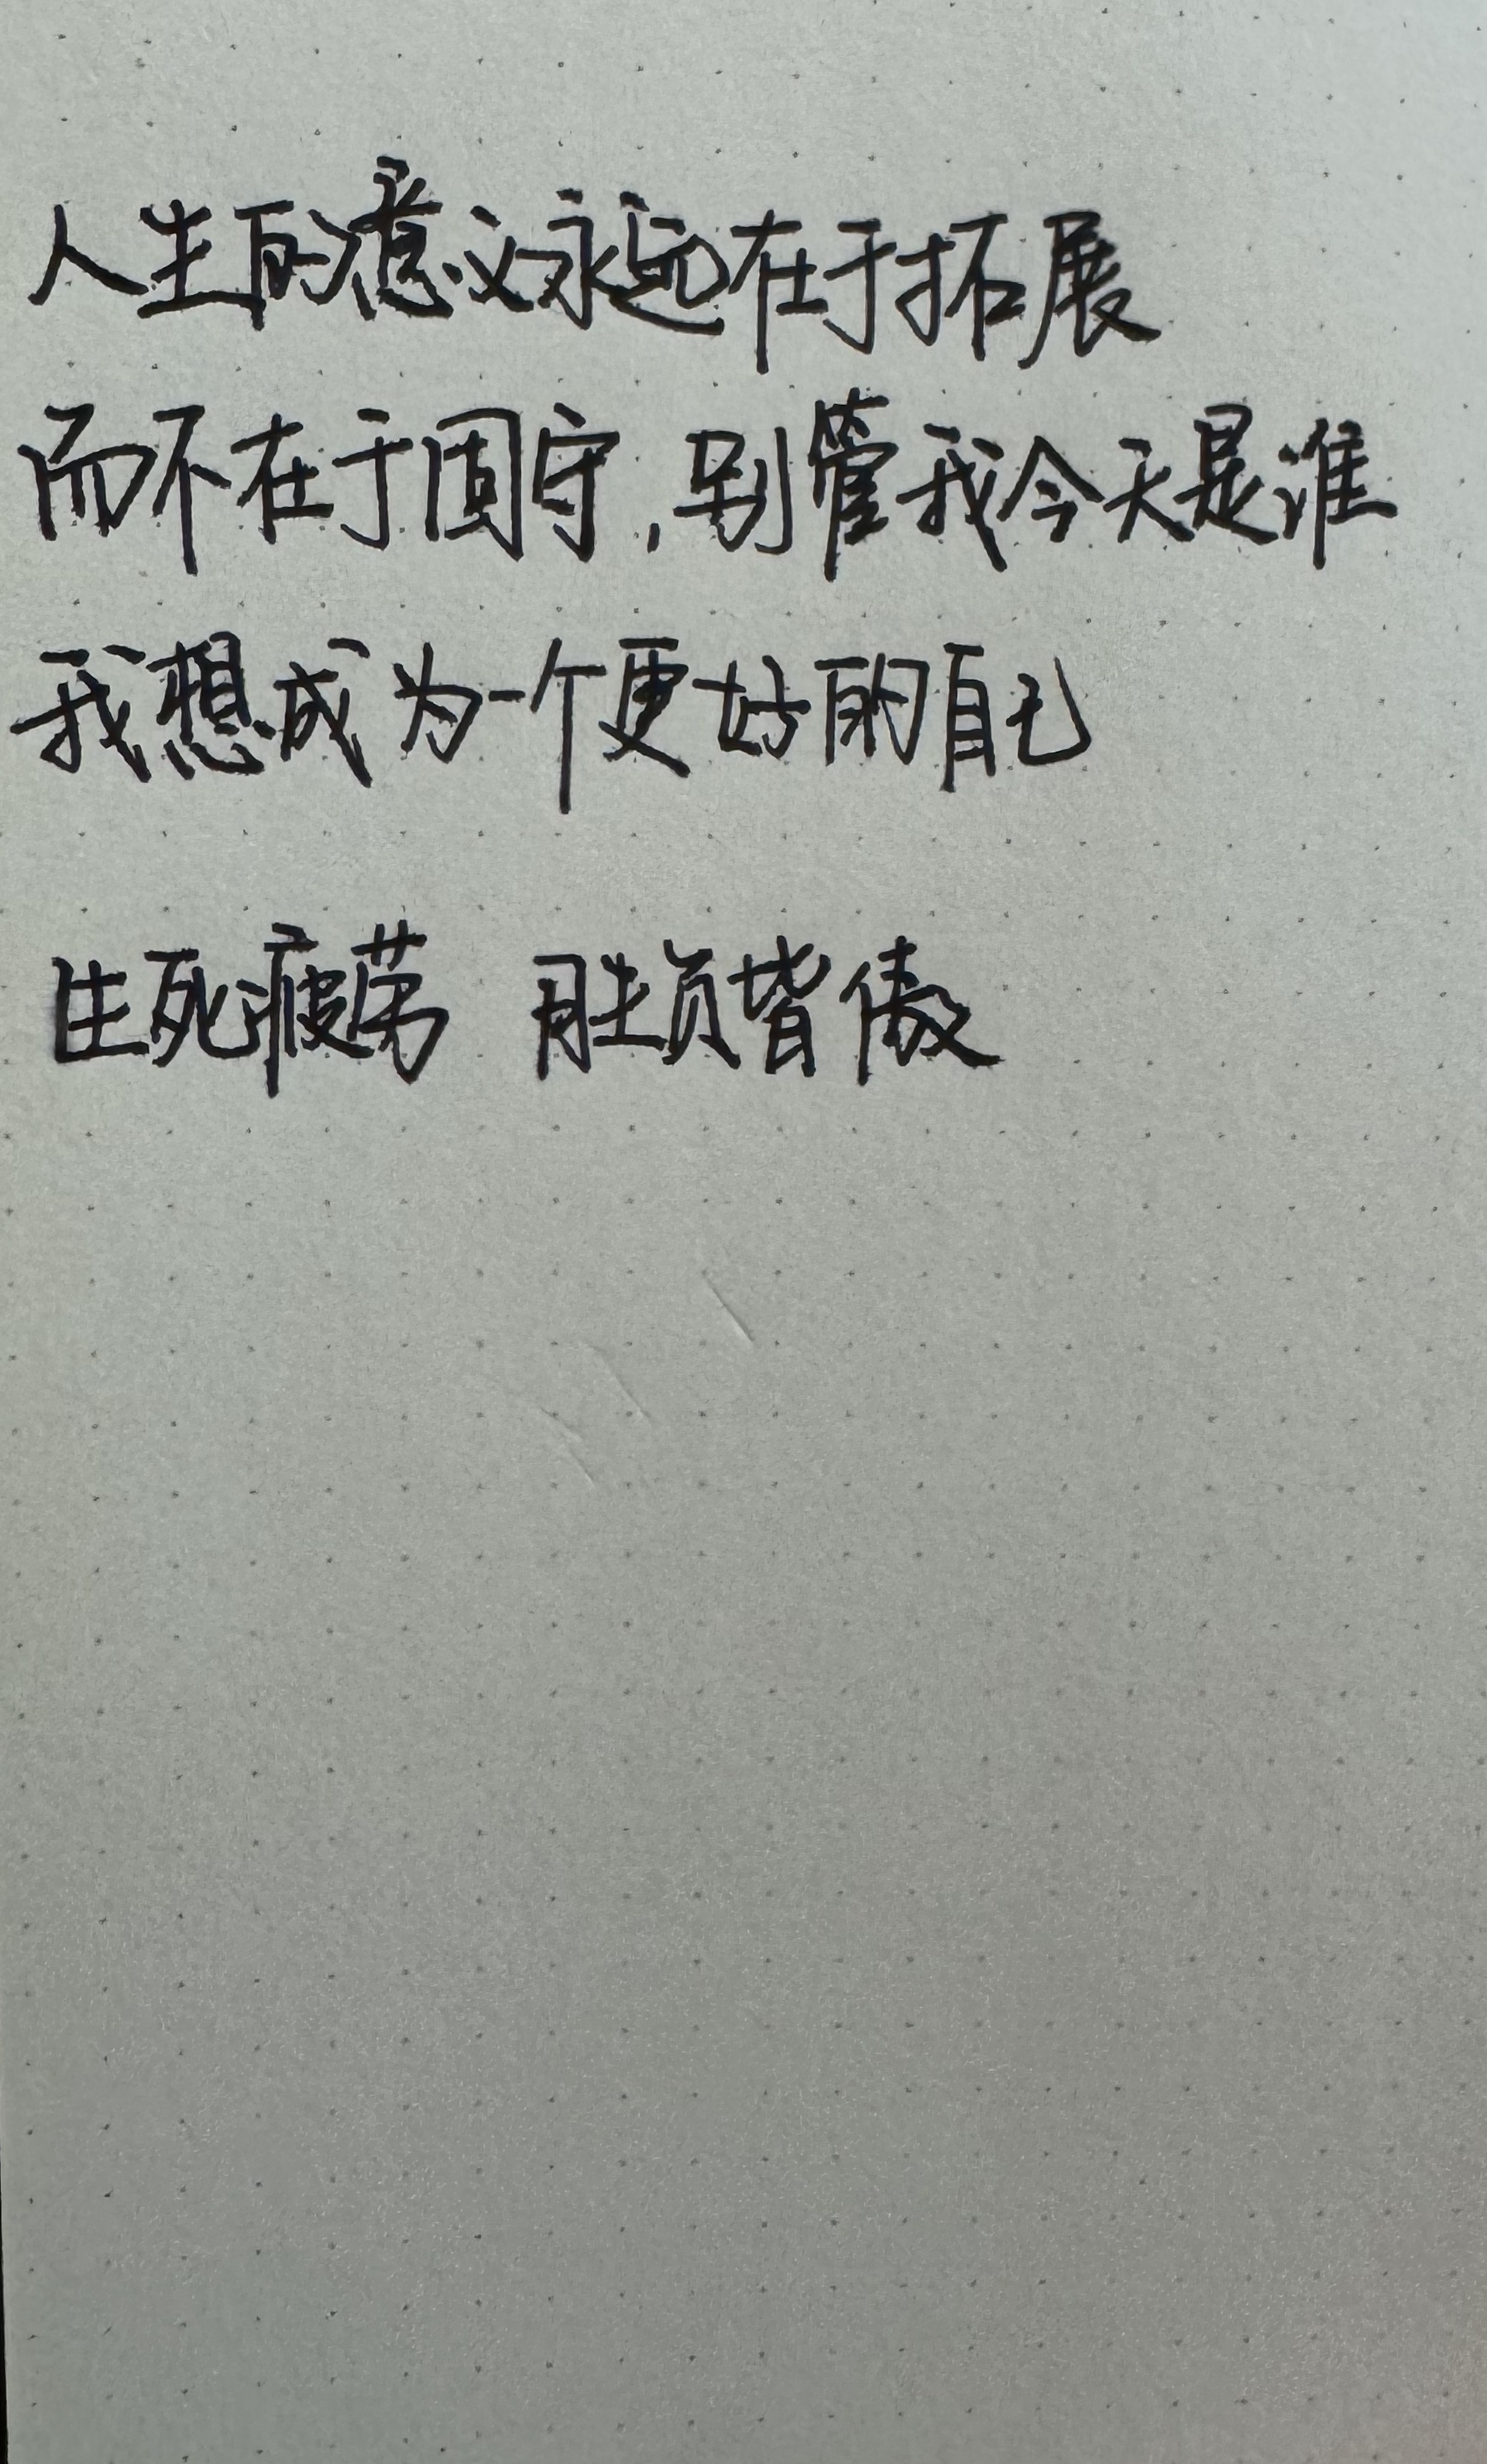 人生的意义永远在于拓展
而不在于固守,别管我今天是谁
我想成为一个更好的自己
生死疲劳 胜负皆傲